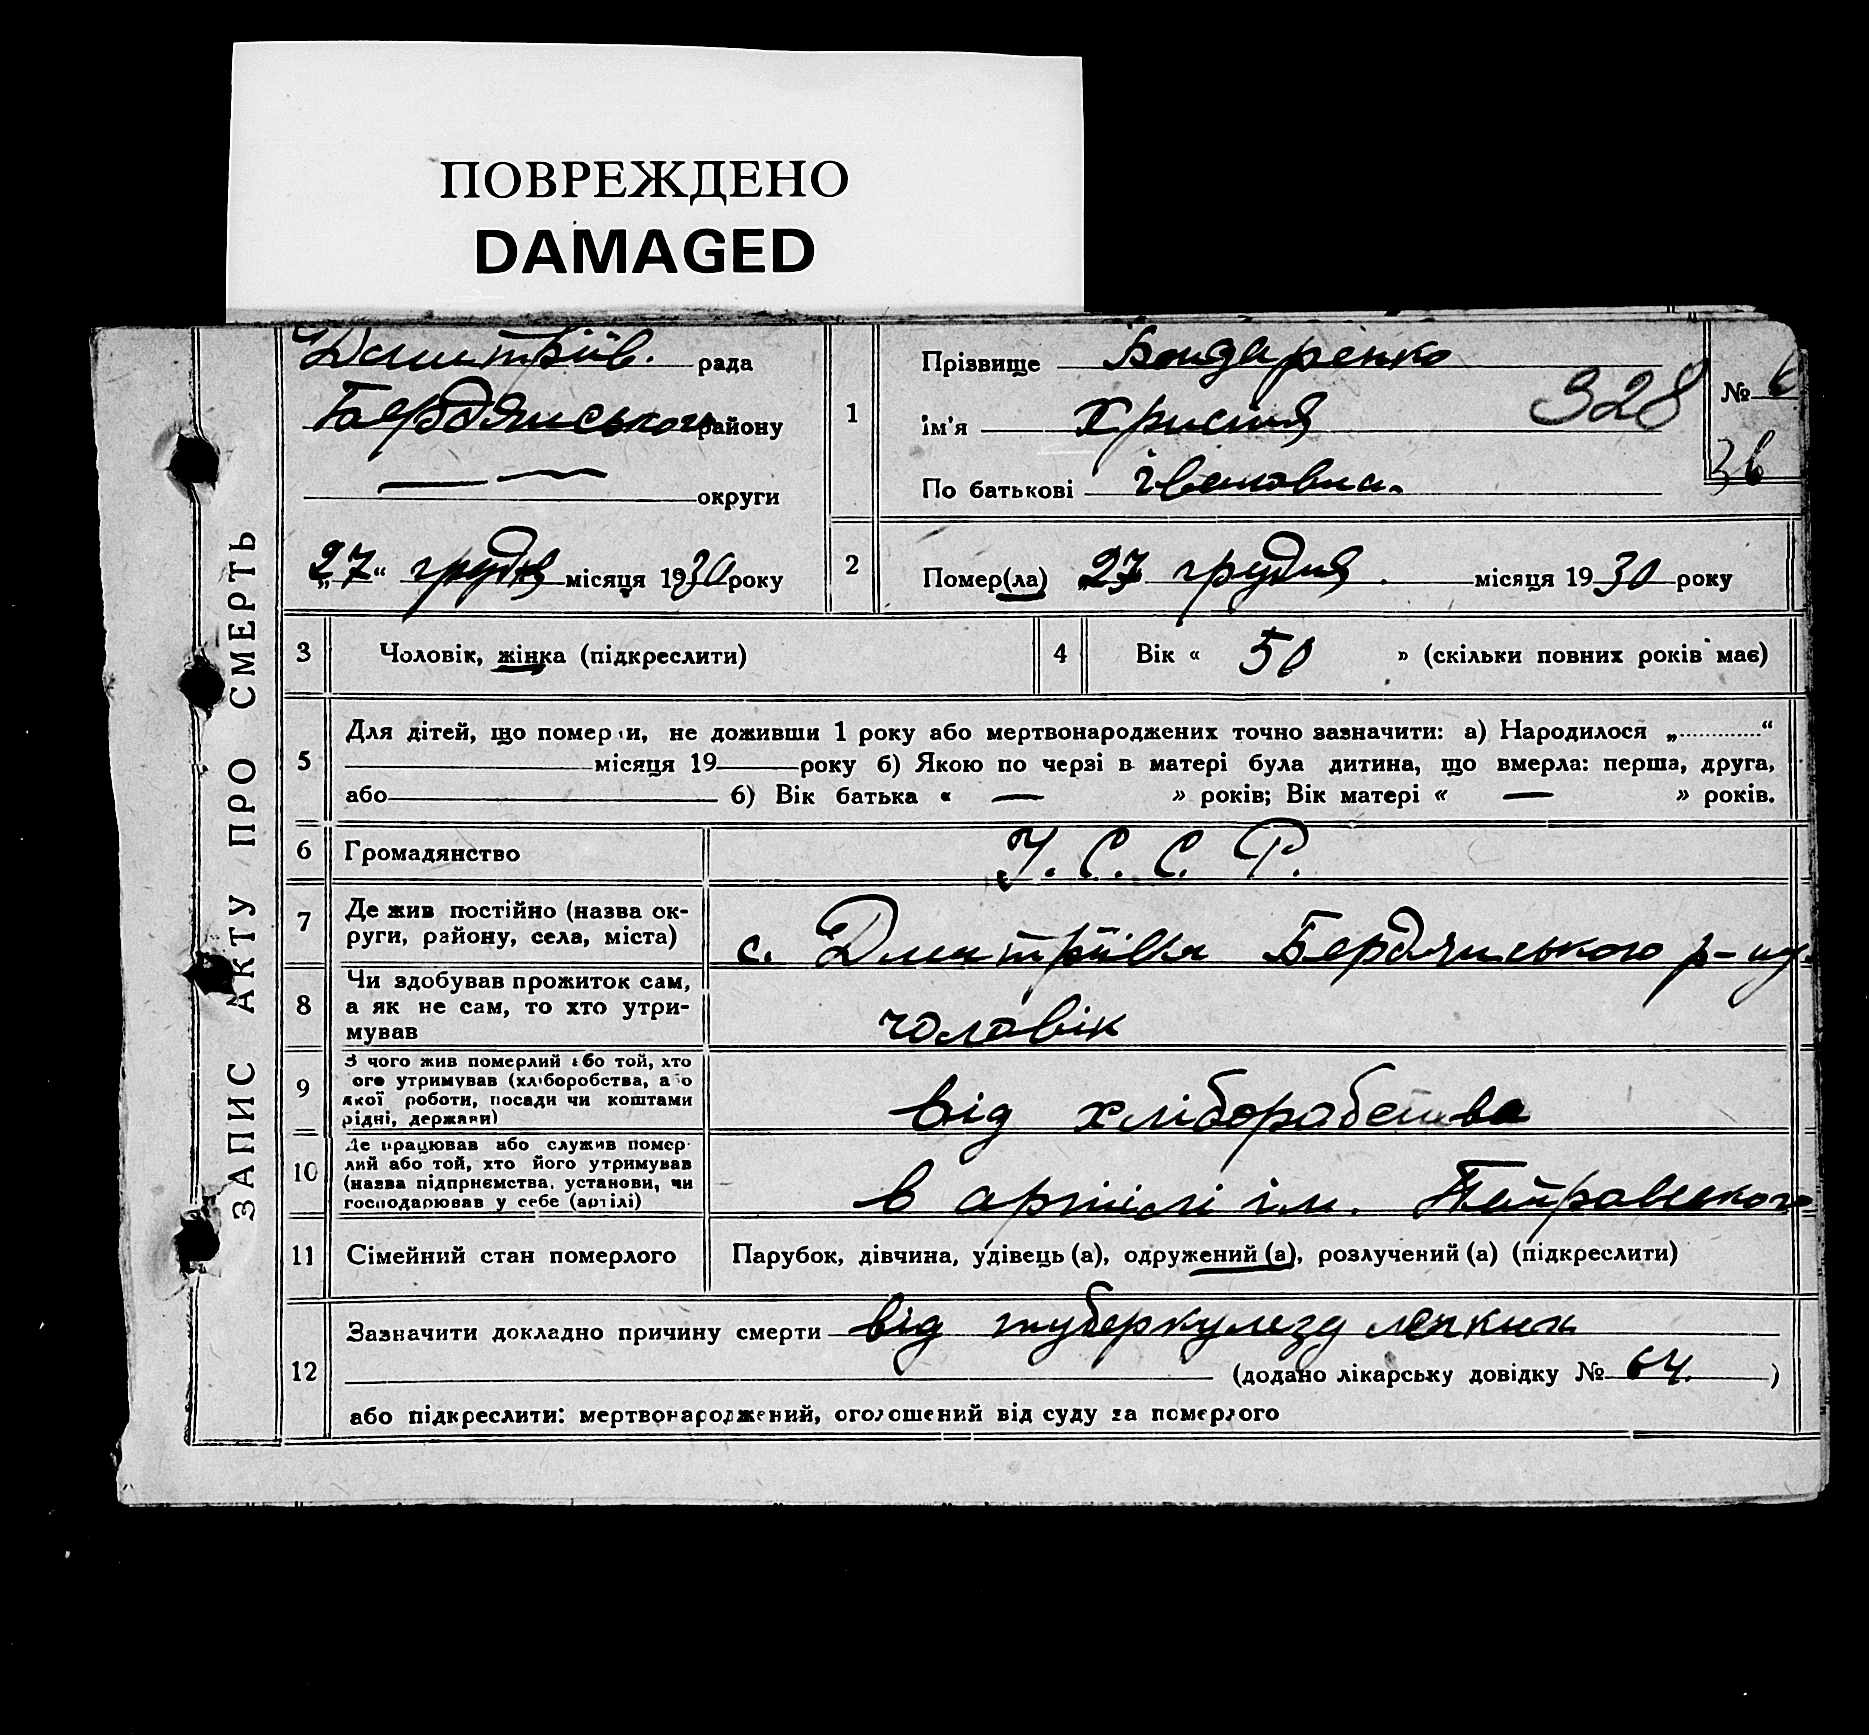 ПОВРЕЖДЕНО
DAMAGED
ЗАПИС АКТУ ПРО СМЕРТЬ
Дмитріїв. рада
Бердянського району
округи
„27“ грудня місяця 1930 року
1
Прізвище Бондаренко
ім'я Христя
По батькові Івановна.
328
№ 6
36
2
Помер(ла) 27 грудня. місяця 1930 року
3 Чоловік, жінка (підкреслити)
4 Вік « 50 » (скільки повних років має)
5
Для дітей, що померли, не доживши 1 року або мертвонароджених точно зазначити: а) Народилося „............“
місяця 19 року б) Якою по черзі в матері була дитина, що вмерла: перша, друга,
або б) Вік батька « — » років; Вік матері « — » років.
6 Громадянство У. С. С. Р.
7 Де жив постійно (назва ок-
руги, району, села, міста)
с. Дмитріївка Бердянського р-ну.
8 Чи здобував прожиток сам,
а як не сам, то хто утри-
мував
чоловік
9 З чого жив померлий або той, хто
ого утримував (хліборобства, або
якої роботи, посади чи коштами
рідні, держави)
від хліборобства
10 Де працював або служив помер-
лий або той, хто його утримував
(назва підприємства, установи, чи
господарював у себе (артілі)
в артілі ім. Петровського
11 Сімейний стан померлого Парубок, дівчина, удівець (а), одружений (а), розлучений (а) (підкреслити)
12
Зазначити докладно причину смерти від туберкулезу легких
(додано лікарську довідку № 64. )
або підкреслити: мертвонароджений, оголошений від суду за померлого